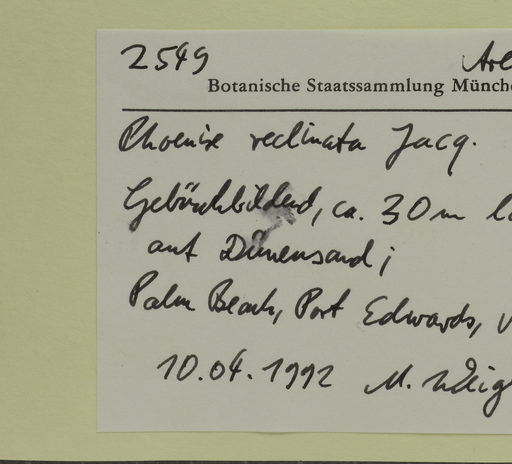 2549 Are
Botanische Staatssammlung Münche
Phoenix reclinata Jacq.
Gebüschbildend, ca. 30m
auf Dünensand;
Palm Beach, Port Edwards,
10.04.1992 M.